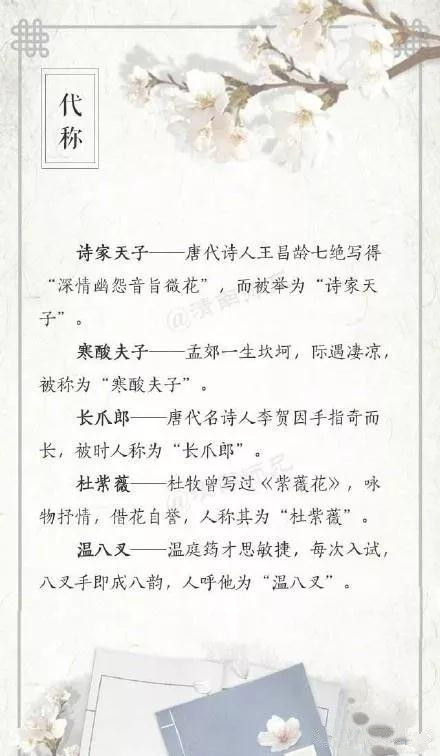 代
称
诗家天子——唐代诗人王昌龄七绝写得
“深情幽怨音旨微花”，而被举为“诗家天
子”。
寒酸夫子——孟郊一生坎坷，际遇凄凉，
被称为“寒酸夫子”。
长爪郎——唐代名诗人李贺因手指奇而
长，被时人称为“长爪郎”。
杜紫薇——杜牧曾写过《紫薇花》，咏
物抒情，借花自誉，人称其为“杜紫薇”。
温八叉——温庭筠才思敏捷，每次入试，
八叉手即成八韵，人呼他为“温八叉”。